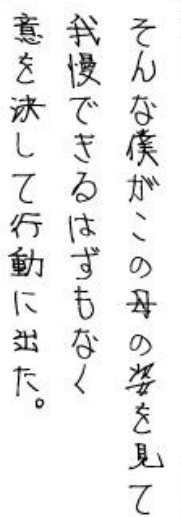 そんな僕がこの母の姿を見て
我慢できるはずもなく
意を決して行動に出た。